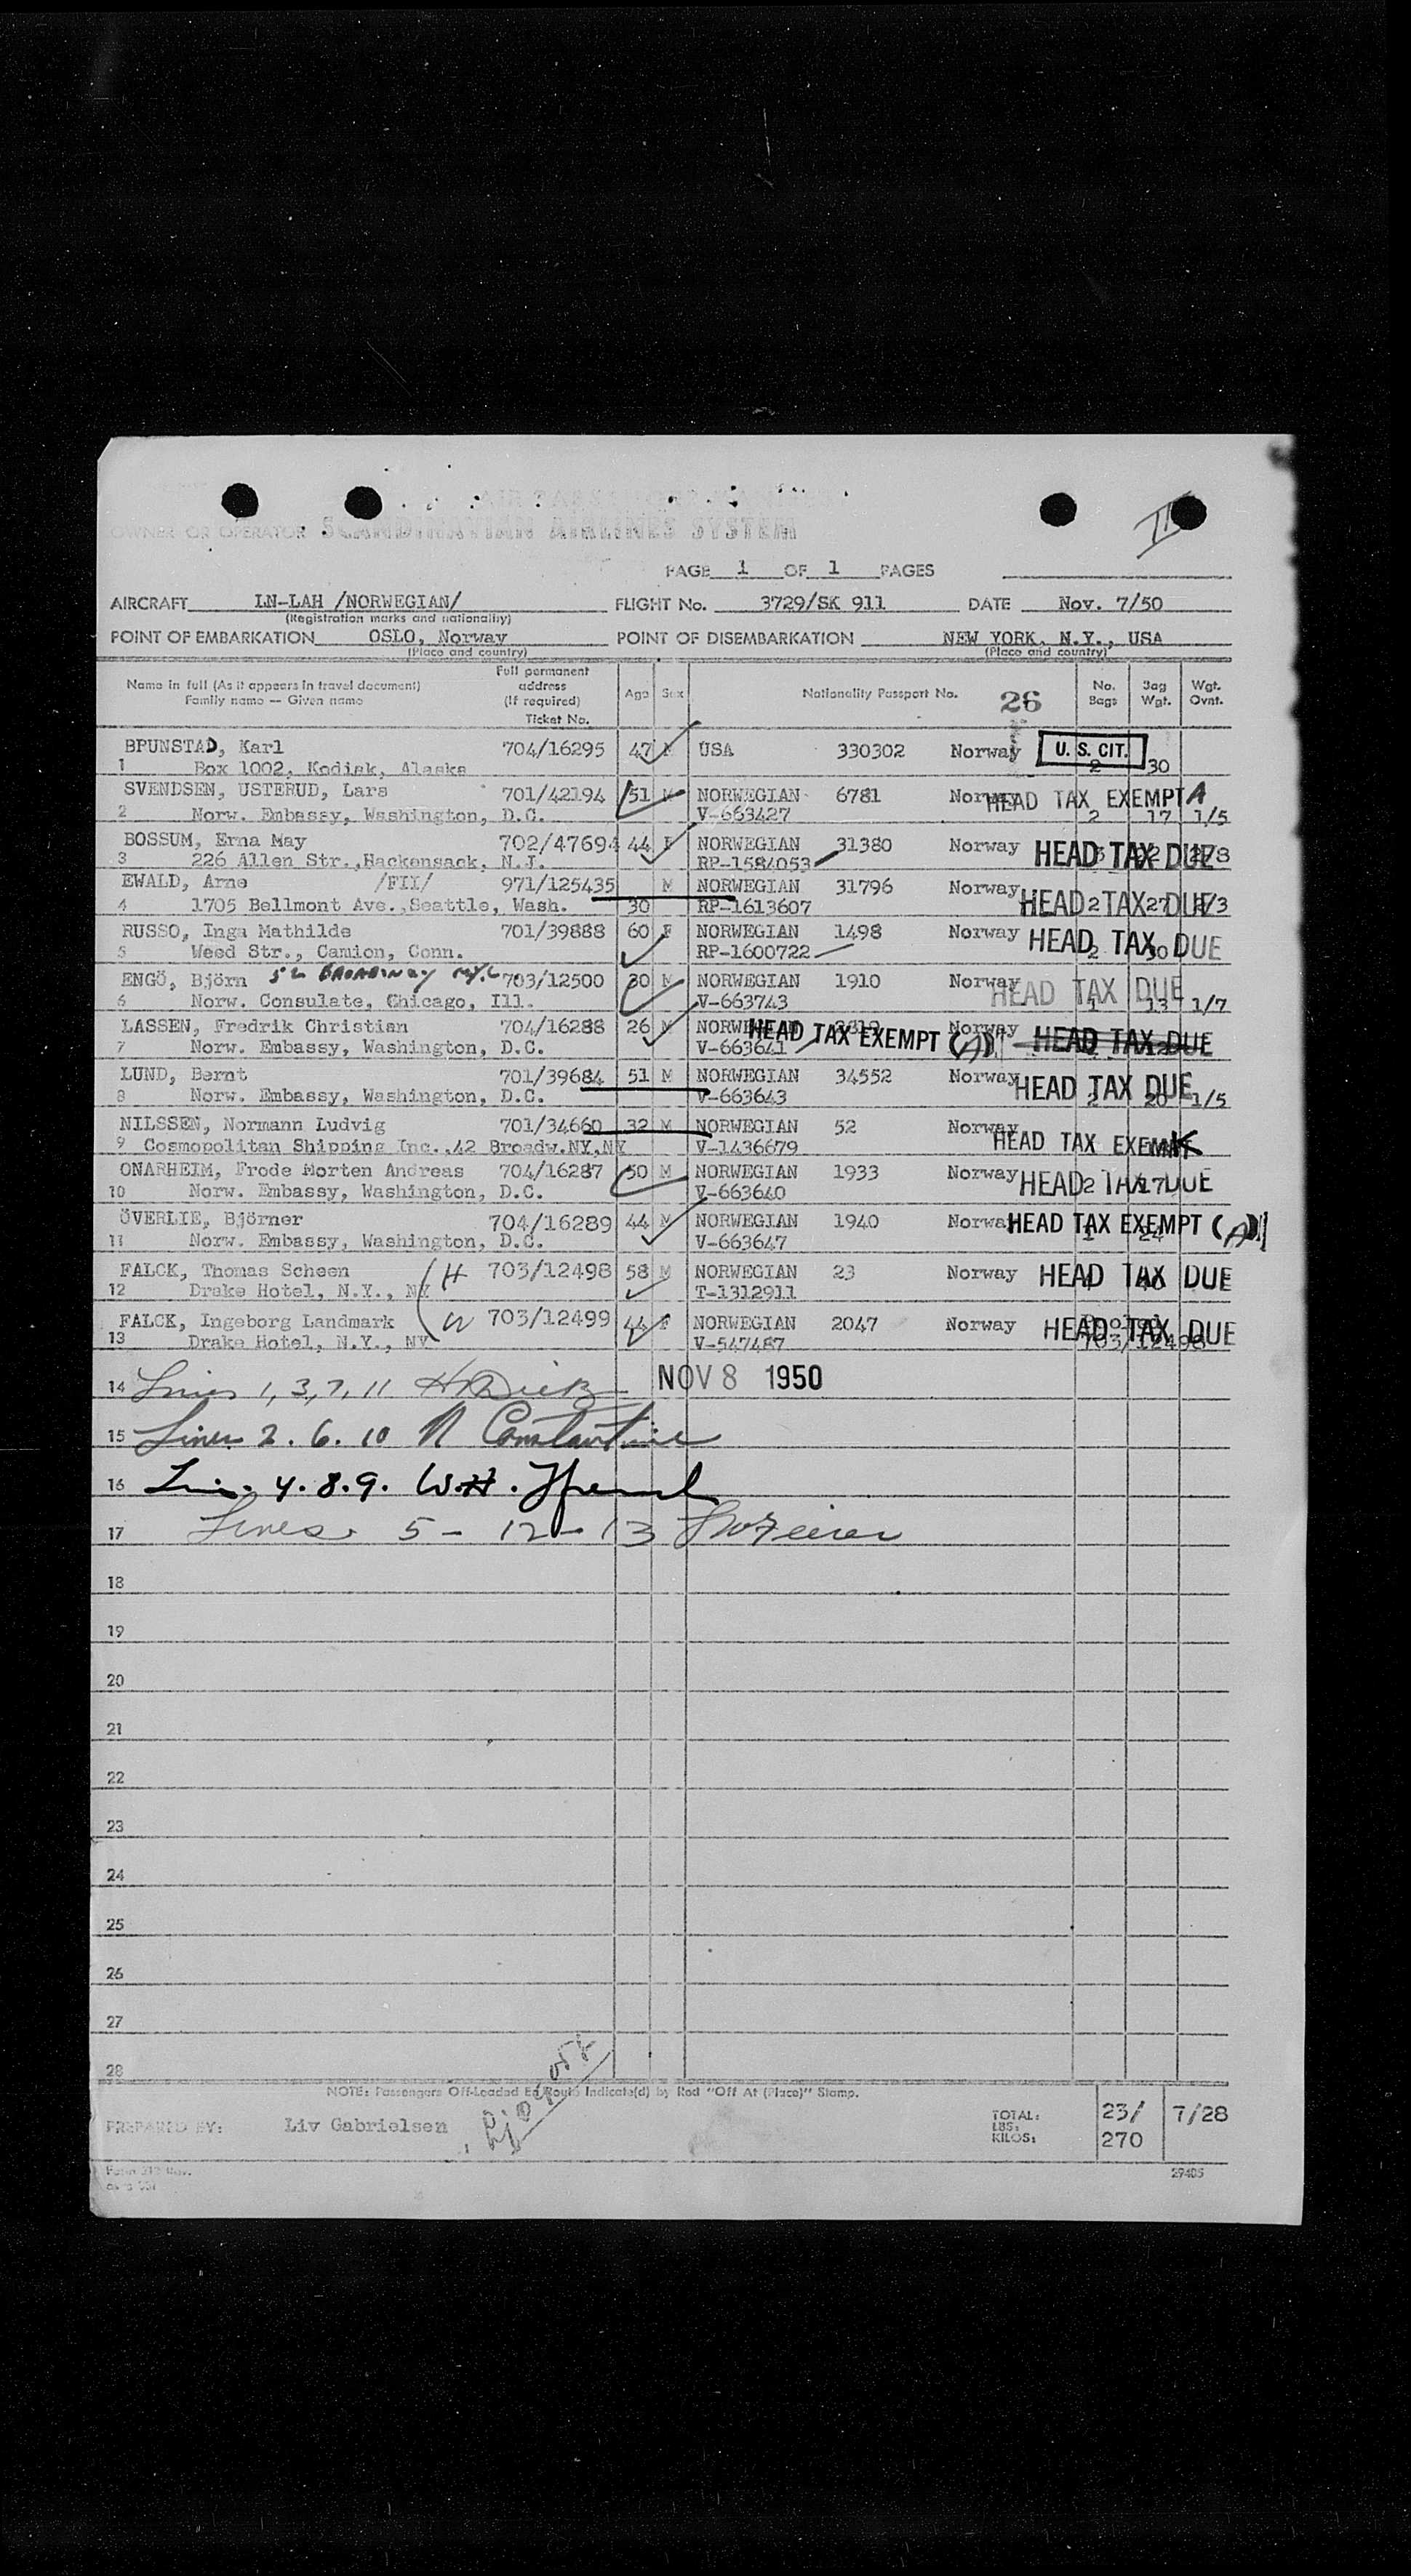 II
OWNER OR OPERATOR SCANDINAVIAN AIRLINES SYSTEM
PAGE 1 OF 1 PAGES
AIRCRAFT LN-LAH /NORWEGIAN/ FLIGHT No. 3729/SK 911 DATE Nov. 7/50
(Registration marks and nationality)
POINT OF EMBARKATION OSLO, Norway POINT OF DISEMBARKATION NEW YORK, N.Y., USA
(Place and country) (Place and country)
Name in full (As it appears in travel document) Family name — Given name Full permanent address (If required) Ticket No. Age Sex Nationality Passport No. 26 No. Bags Bag Wgt. Wgt. Ovnt.
BPUNSTAD, Karl 704/16295 47 M USA 330302 Norway U. S. CIT.
1 Box 1002, Kodiak, Alaska 2 30
SVENDSEN, USTERUD, Lars 701/42194 51 M NORWEGIAN 6781 Norway HEAD TAX EXEMPT A
2 Norw. Embassy, Washington, D.C. V-663427 2 17 1/5
BOSSUM, Erna May 702/47694 44 F NORWEGIAN 31380 Norway HEAD TAX DUE
3 226 Allen Str.,Hackensack, N.J. RP-1584053
EWALD, Arne /FII/ 971/125435 M NORWEGIAN 31796 Norway HEAD TAX DUE
4 1705 Bellmont Ave.,Seattle, Wash. 30 RP-1613607 2 27
RUSSO, Inga Mathilde 701/39888 60 F NORWEGIAN 1498 Norway HEAD TAX DUE
5 Weed Str., Camion, Conn. RP-1600722 2 30
ENGÖ, Björn 52 BROADWAY N.Y.C 703/12500 30 M NORWEGIAN 1910 Norway HEAD TAX DUE
6 Norw. Consulate, Chicago, Ill. V-663743 1 13 1/7
LASSEN, Fredrik Christian 704/16288 26 M NORWEGIAN Norway HEAD TAX EXEMPT (A) HEAD TAX DUE
7 Norw. Embassy, Washington, D.C. V-663641
LUND, Bernt 701/39684 51 M NORWEGIAN 34552 Norway HEAD TAX DUE
8 Norw. Embassy, Washington, D.C. V-663643 2 20 1/5
NILSSEN, Normann Ludvig 701/34660 32 M NORWEGIAN 52 Norway HEAD TAX EXEMPT
9 Cosmopolitan Shipping Inc.,42 Broadw.NY,NY V-1436679
ONARHEIM, Frode Morten Andreas 704/16287 50 M NORWEGIAN 1933 Norway HEAD TAX DUE
10 Norw. Embassy, Washington, D.C. V-663640 2 17
ÖVERLIE, Björner 704/16289 44 M NORWEGIAN 1940 Norway HEAD TAX EXEMPT (A)
11 Norw. Embassy, Washington, D.C. V-663647 1 24
FALCK, Thomas Scheen H 703/12498 58 M NORWEGIAN 23 Norway HEAD TAX DUE
12 Drake Hotel, N.Y., NY T-1312911
FALCK, Ingeborg Landmark W 703/12499 44 F NORWEGIAN 2047 Norway HEAD TAX DUE
13 Drake Hotel, N.Y., NY V-547487 703/12498
14 Lines 1, 3, 7, 11 NOV 8 1950
15 Lines 2. 6. 10 N Constantine
16 4. 8. 9. W.H.
17 Lines 5 - 12 - 13
18
19
20
21
22
23
24
25
26
27
28
NOTE: Passengers Off-Loaded En Route Indicate(d) by Red "Off At (Place)" Stamp.
PREPARED BY: Liv Gabrielsen TOTAL: LBS: KILOS: 23/ 270 7/28
29405